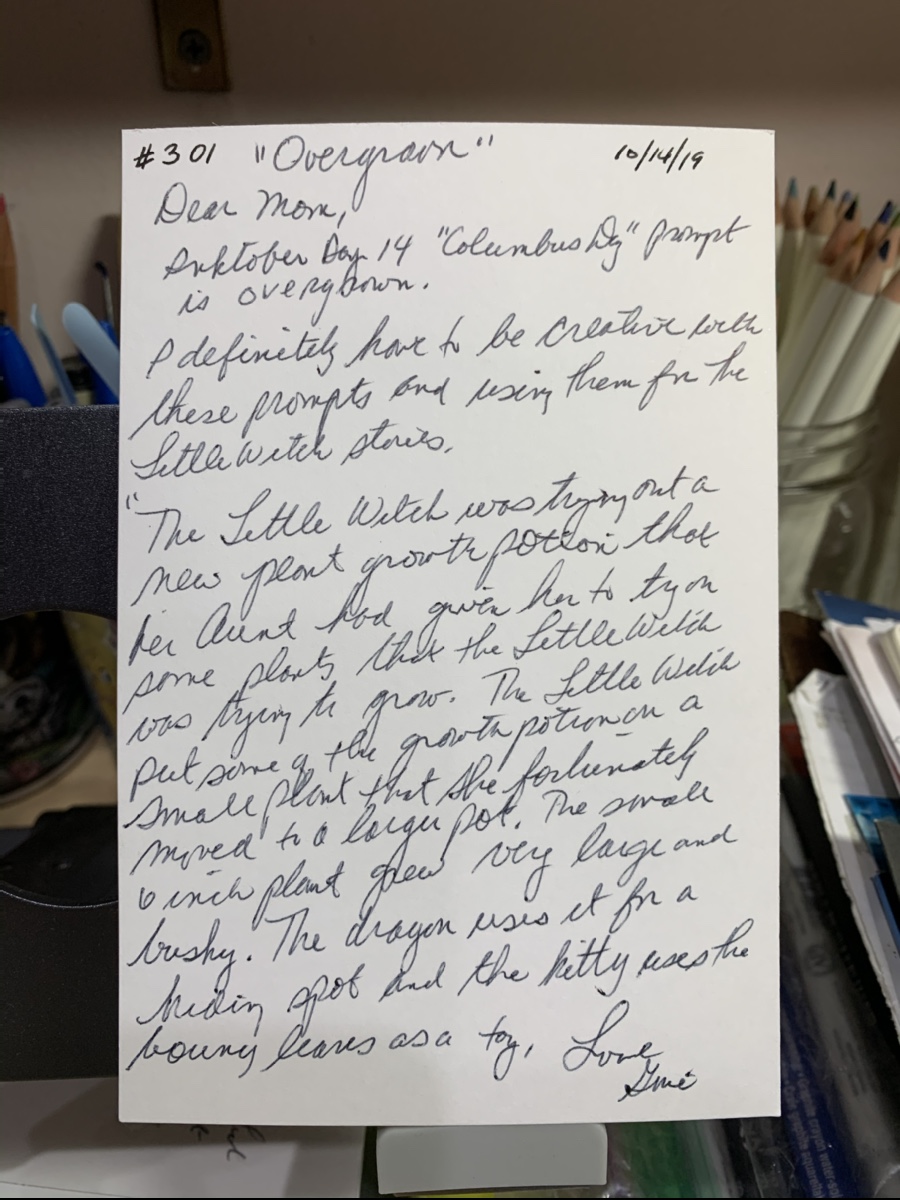 #301 "Overgrown" 10/14/19
Dear Mom,
Inktober Day 14 "Columbus Day" prompt
is overgrown.
I definitely have to be creative with
these prompts and using them for the
Little Witch stories.
"The Little Witch was trying out a
new plant growth potion that
her Aunt had given her to try on
some plants that the Little Witch
was trying to grow. The Little Witch
put some of the growth potion on a
small plant that she fortunately
moved to a larger pot. The small
6 inch plant grew very large and
bushy. The dragon uses it for a
hiding spot and the kitty uses the
bouncy leaves as a toy. Love